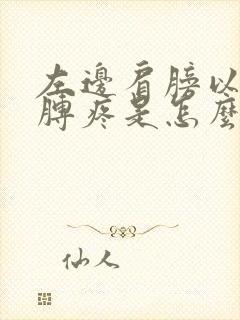 左邊肩膀以
膊疼是怎麼
仙人